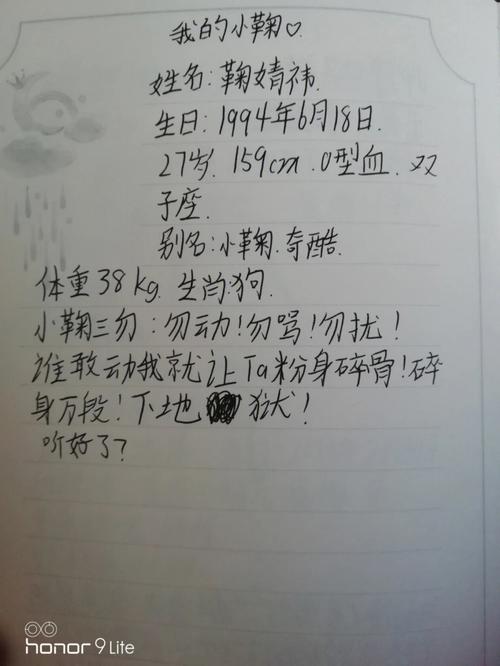 我的小鞠♡.
姓名:鞠婧祎.
生日:1994年6月18日.
27岁.159cm.O型血.双
子座.
别名:小鞠.奇酷.
体重38kg.生肖:狗.
小鞠三勿:勿动!勿骂!勿扰!
谁敢动我就让Ta粉身碎骨!碎
身万段!下地狱!
听好了?
honor 9 Lite